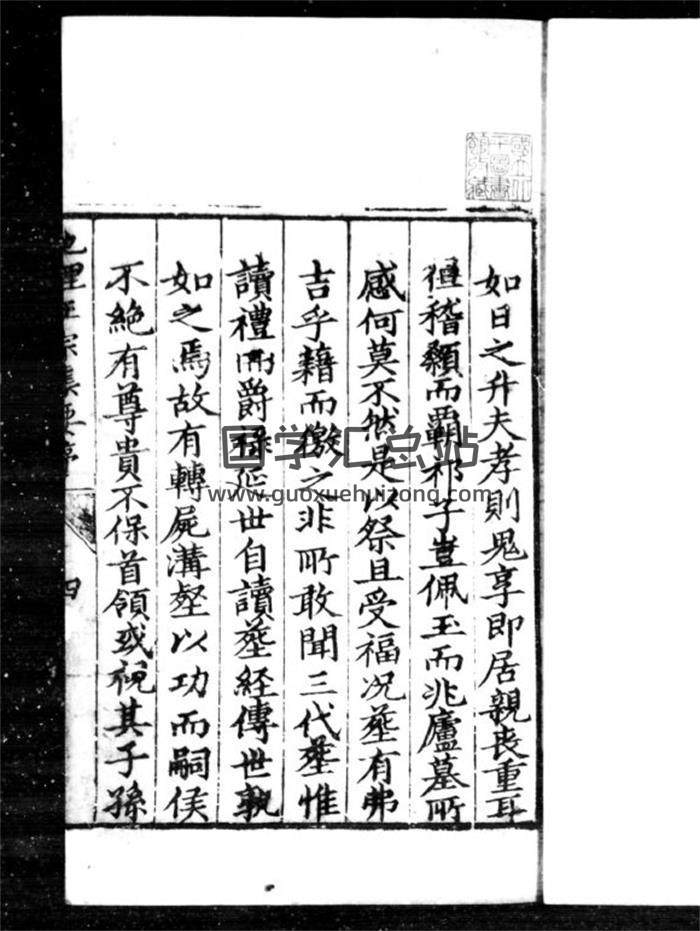 如日之升夫孝則鬼享即居親喪重耳
稽顙而覇祁子豈佩玉而兆廬墓所
感何莫不然是以祭且受福况塟有弗
吉乎藉而徼之非所敢聞三代塟惟
讀禮而爵祿延世自讀塟經傳世孰
如之焉故有轉屍溝壑以功而嗣侯
不絶有尊貴不保首領或視其子孫
地理正宗集要序
四
国学汇总站
www.guoxuehuizong.com